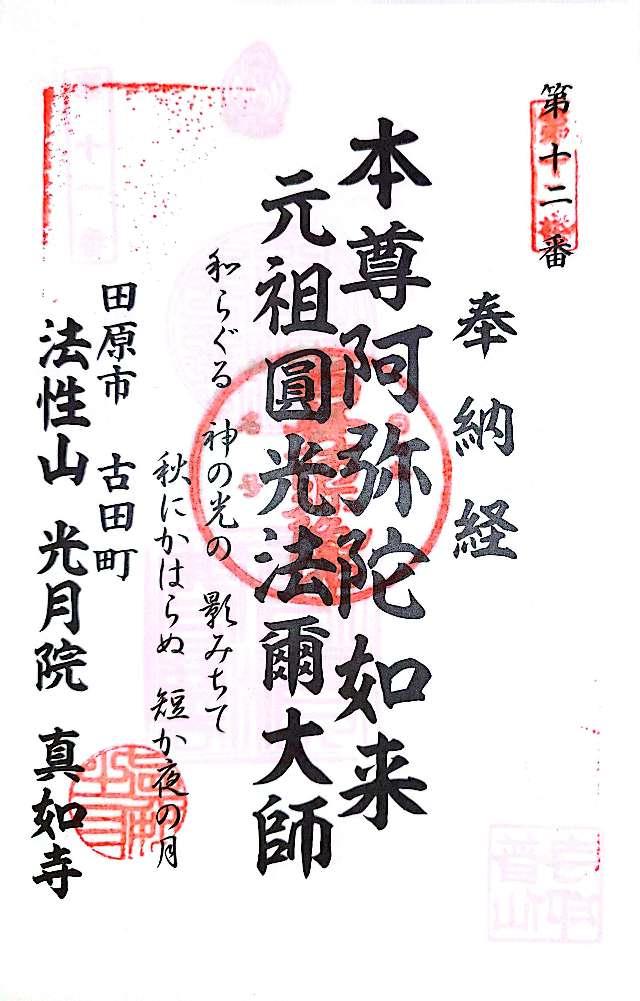 第十二番
奉納経
本尊阿弥陀如来
元祖圓光法爾大師
和らぐる 神の光の 影みちて
秋にかはらぬ 短か夜の月
田原市 古田町
法性山 光月院 真如寺